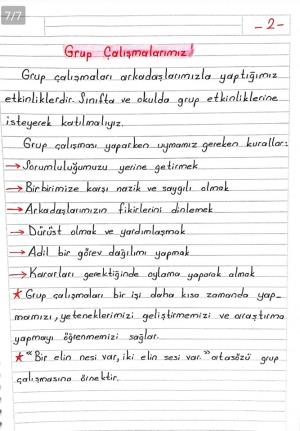 7/7
-2-
Grup Çalışmalarımız!
Grup çalışmaları arkadaşlarımızla yaptığımız
etkinliklerdir. Sınıfta ve okulda grup etkinliklerine
isteyerek katılmalıyız.
Grup çalışması yaparken uymamız gereken kurallar:
→Sorumluluğumuzu yerine getirmek
→Birbirimize karşı nazik ve saygılı olmak
→Arkadaşlarımızın fikirlerini dinlemek
→Dürüst olmak ve yardımlaşmak
→Adil bir görev dağılımı yapmak
→Kararları gerektiğinde oylama yaparak almak
★Grup çalışmaları bir işi daha kısa zamanda yap-
mamızı, yeteneklerimizi geliştirmemizi ve araştırma
yapmayı öğrenmemizi sağlar.
★"Bir elin nesi var, iki elin sesi var." atasözü grup
çalışmasına örnektir.